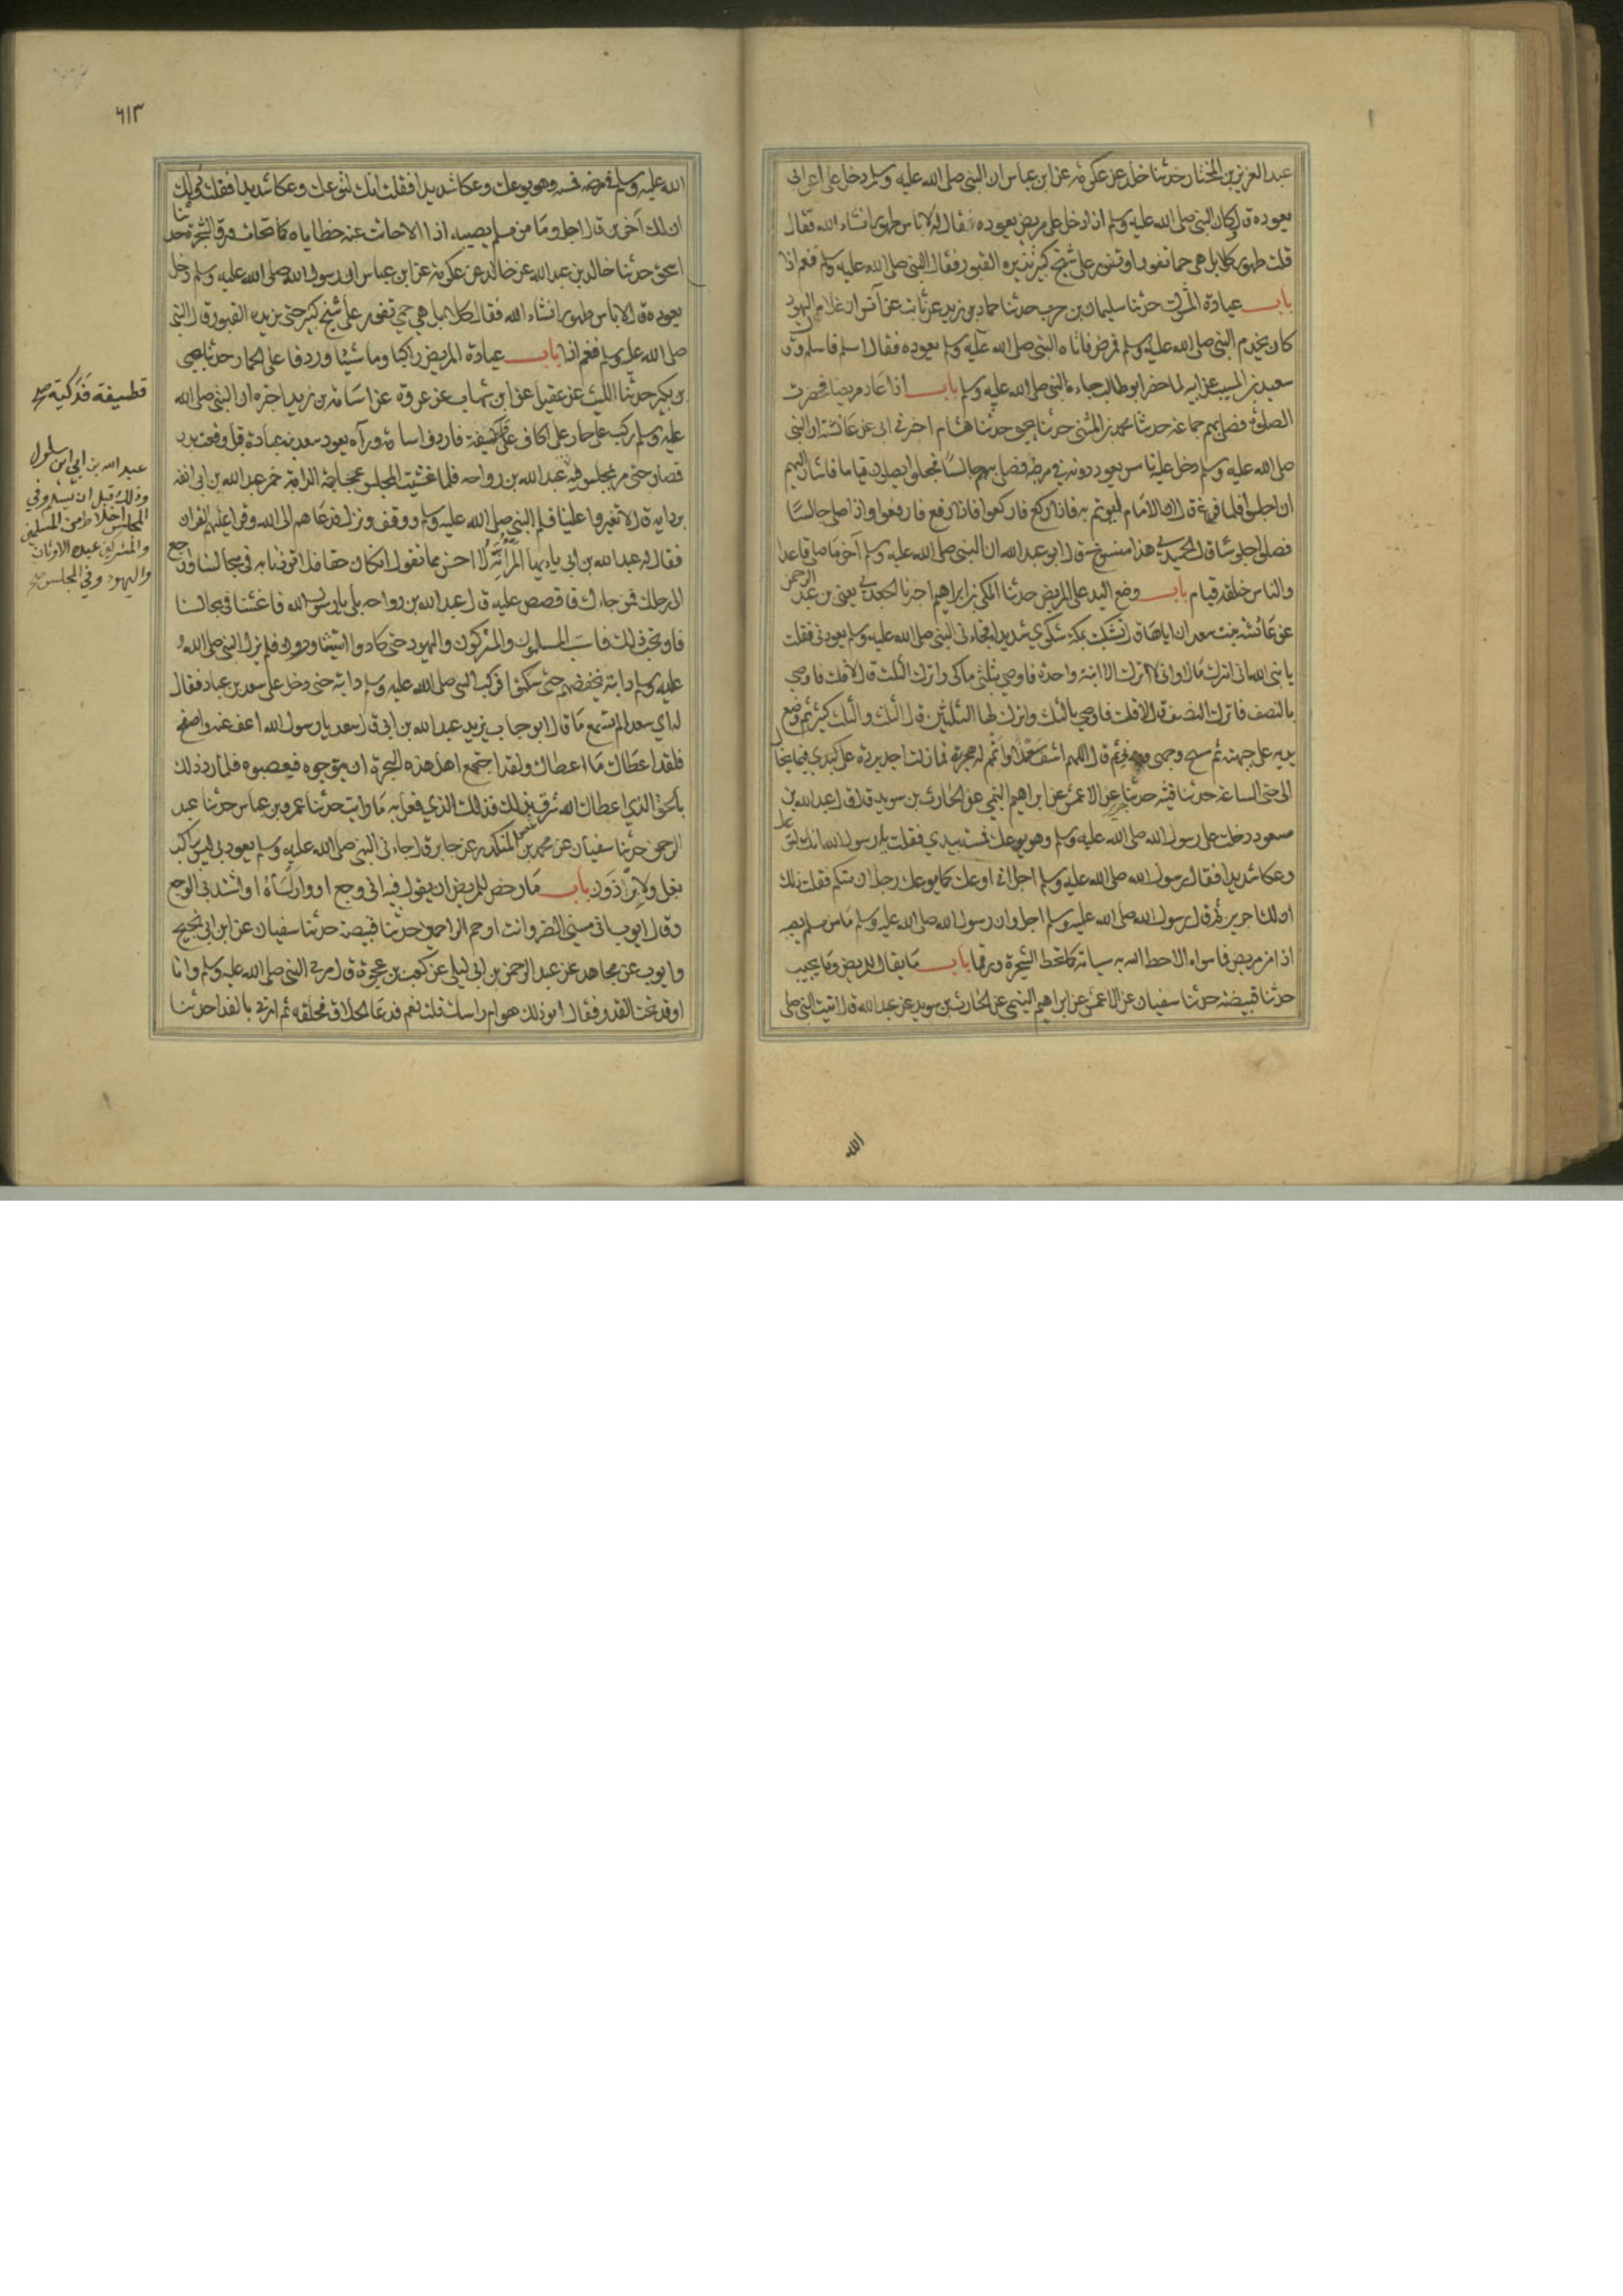 عبد العزيز بن المختار حدثنا خالد عن عكرمة عن ابن عباس ان النبي صلى الله عليه وسلم دخل على اعرابي
يعوده قال وكان النبي صلى الله عليه وسلم اذا دخل على مريض يعوده فقال له لا باس طهور ان شاء الله فقال
قلت طهور كلا بل هي حمى تفور او تثور على شيخ كبير تزيره القبور فقال النبي صلى الله عليه وسلم فنعم اذا
باب عيادة المشرك حدثنا سليمان بن حرب حدثنا حماد بن زيد عن ثابت عن انس ان غلاما ليهود
كان يخدم النبي صلى الله عليه وسلم فمرض فاتاه النبي صلى الله عليه وسلم يعوده فقال اسلم فاسلم وقال
سعيد بن المسيب عن ابيه لما حضر ابو طالب جاءه النبي صلى الله عليه وسلم باب اذا عاد مريضا فحضرت
الصلوة فصلى بهم جماعة حدثنا محمد بن المثنى حدثنا يحيى حدثنا هشام اخبرني ابي عن عائشة ان النبي
صلى الله عليه وسلم دخل عليه ناس يعودونه في مرضه فصلى بهم جالسا فجعلوا يصلون قياما فاشار اليهم
ان اجلسوا فلما فرغ قال ان الامام ليؤتم به فاذا ركع فاركعوا فاذا رفع فارفعوا واذا صلى جالسا
فصلوا جلوسا قال الحميدي هذا منسوخ قال ابو عبد الله ان النبي صلى الله عليه وسلم آخر ما صلى قاعدا
والناس خلفه قيام باب وضع اليد على المريض حدثنا المكي بن ابراهيم اخبرنا الجعيد يعني بن عبد الرحمن
عن عائشة بنت سعد ان اباها قال تشكيت بمكة شكوى شديدا فجاءني النبي صلى الله عليه وسلم يعودني فقلت
يا نبي الله اني اترك مالا واني لا اترك الا ابنة واحدة فاوصي بثلثي مالي واترك الثلث قال لا قلت فاوصي
بالنصف فاترك النصف قال لا قلت فاوصي بالثلث واترك لها الثلثين قال الثلث والثلث كثير ثم وضع
يده على جبهته ثم مسح وجهي ثم قال اللهم اشف سعدا واتمم له هجرته فما زلت اجد برده على كبدي فيما يخال
الى حتى الساعة حدثنا قتيبة حدثنا جرير عن الاعمش عن ابراهيم التيمي عن الحارث بن سويد قال قال عبد الله بن
مسعود دخلت على رسول الله صلى الله عليه وسلم وهو يوعك فمسسته بيدي فقلت يا رسول الله انك لتوعك
وعكا شديدا فقال رسول الله صلى الله عليه وسلم اجل اني اوعك كما يوعك رجلان منكم فقلت ذلك
ان لك اجرين ثم قال رسول الله صلى الله عليه وسلم اجل وان رسول الله صلى الله عليه وسلم ما من مسلم يصيبه
اذا من مريض فما سواه الا حط الله به سياته كما تحط الشجرة ورقها باب ما يقال للمريض وما يجيب
حدثنا قبيصة حدثنا سفيان عن الاعمش عن ابراهيم التيمي عن الحارث بن سويد عن عبد الله قال اتيت النبي صلى
الله
٦١٣
الله عليه وسلم في مرضه فمسسته وهو يوعك وعكا شديدا فقلت انك لتوعك وعكا شديدا فقلت ذلك
ان لك اجرين قال اجل وما من مسلم يصيبه اذا الا حاتت عنه خطاياه كما تحات ورق الشجرة حدثنا
اسحق حدثنا خالد بن عبد الله عن خالد عن عكرمة عن ابن عباس ان رسول الله صلى الله عليه وسلم دخل
يعوده قال لا باس طهور ان شاء الله فقال كلا بل هي حمى تفور على شيخ كبير حتى تزيره القبور قال النبي
صلى الله عليه وسلم فنعم اذا باب عيادة المريض راكبا وماشيا وردفا على الحمار حدثنا يحيى
بن بكير حدثنا الليث عن عقيل عن ابن شهاب عن عروة عن اسامة بن زيد اخبره ان النبي صلى الله
عليه وسلم ركب على حمار على اكاف على قطيفة فاردف اسامة وراه يعود سعد بن عبادة قبل وقعت بدر
فصار حتى مر بمجلس فيه عبد الله بن رواحة فلما غشيت المجلس عجاجة الدابة خمر عبد الله بن ابي انفه
بردايه قال لا تغبروا علينا فسلم النبي صلى الله عليه وسلم ووقف ونزل فدعاهم الى الله وقرا عليهم القران
فقال له عبد الله بن ابي يا ايها المرء انه لا احسن مما تقول ان كان حقا فلا تؤذنا به في مجالسنا وارجع
الى رحلك فمن جاءك فاقصص عليه قال عبد الله بن رواحة بلى يا رسول الله فاغشنا في مجالسنا
فانا نحب ذلك فاستب المسلمون والمشركون واليهود حتى كادوا يتثاورون فلم يزل النبي صلى الله
عليه وسلم دابته يخفضهم حتى سكنوا فركب النبي صلى الله عليه وسلم دابته حتى دخل على سعد بن عبادة فقال
له اي سعد الم تسمع ما قال ابو حباب يريد عبد الله بن ابي قال سعد يا رسول الله اعف عنه واصفح
فلقد اعطاك ما اعطاك ولقد اجتمع اهل هذه البحرة ان يتوجوه فيعصبوه فلما رد ذلك
بالحق الذي اعطاك الله شرق بذلك فذلك الذي فعل به ما رايت حدثنا عمرو بن عباس حدثنا عبد
الرحمن حدثنا سفيان عن محمد بن المنكدر عن جابر قال جاءني النبي صلى الله عليه وسلم يعودني ليس براكب
بغل ولا برذون باب ما رخص للمريض ان يقول اني وجع او وارأساه او اشتد بي الوجع
وقال ايوب اني مسني الضر وانت ارحم الراحمين حدثنا قبيصة حدثنا سفيان عن ابن ابي نجيح
وايوب عن مجاهد عن عبد الرحمن بن ابي ليلى عن كعب بن عجرة قال مر بي النبي صلى الله عليه وسلم وانا
اوقد تحت القدر فقال ايوذيك هوام راسك قلت نعم فدعا الحلاق فحلقه ثم امرني بالفدا حدثنا
قطيفة فدكية صح
عبد الله بن ابي ابن سلول
وذلك قبل ان يسلم وفي
المجلس اخلاط من المسلمين
والمشركين عبدة الاوثان
واليهود وفي المجلس صح